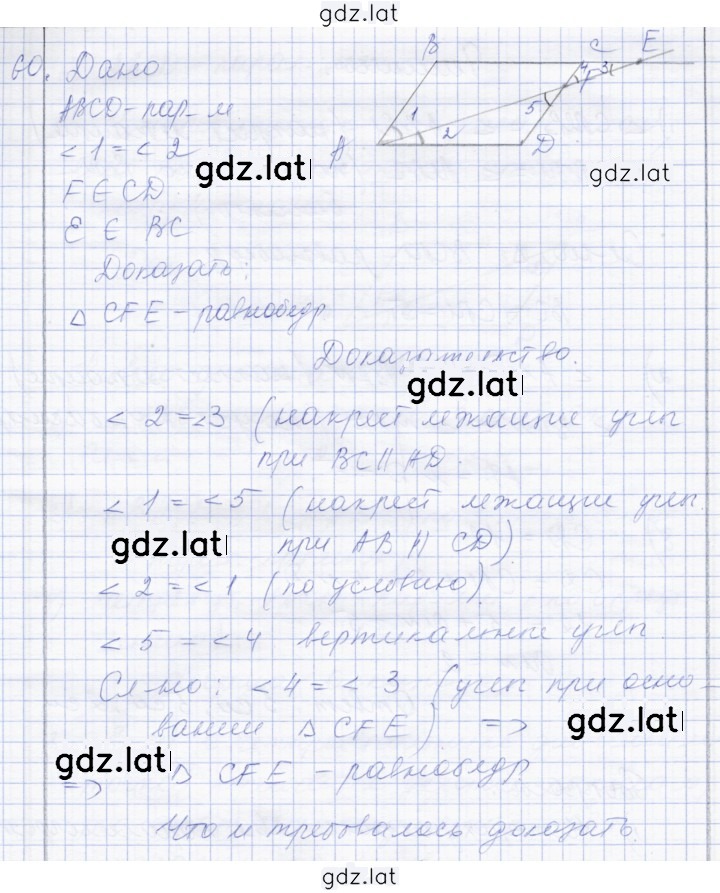 gdz.lat
60. Дано
ABCD-пар-м.
∠1=∠2
F∈CD
E ∈ BC
Доказать:
△ CFE - равнобедр
B C E
4 F 3
1 5
A 2 D
gdz.lat
gdz.lat
Доказательство.
gdz.lat
∠2=∠3 (накрест лежащие углы
при BC || AD.
∠1=∠5 (накрест лежащие угл.
gdz.lat при AB || CD)
∠2=∠1 (по условию)
∠5=∠4 вертикальные углы.
Сл-но: ∠4=∠3 (углы при осно-
вании △ CFE) =>
gdz.lat
gdz.lat
=> △ CFE - равнобедр.
Что и требовалось доказать.
gdz.lat